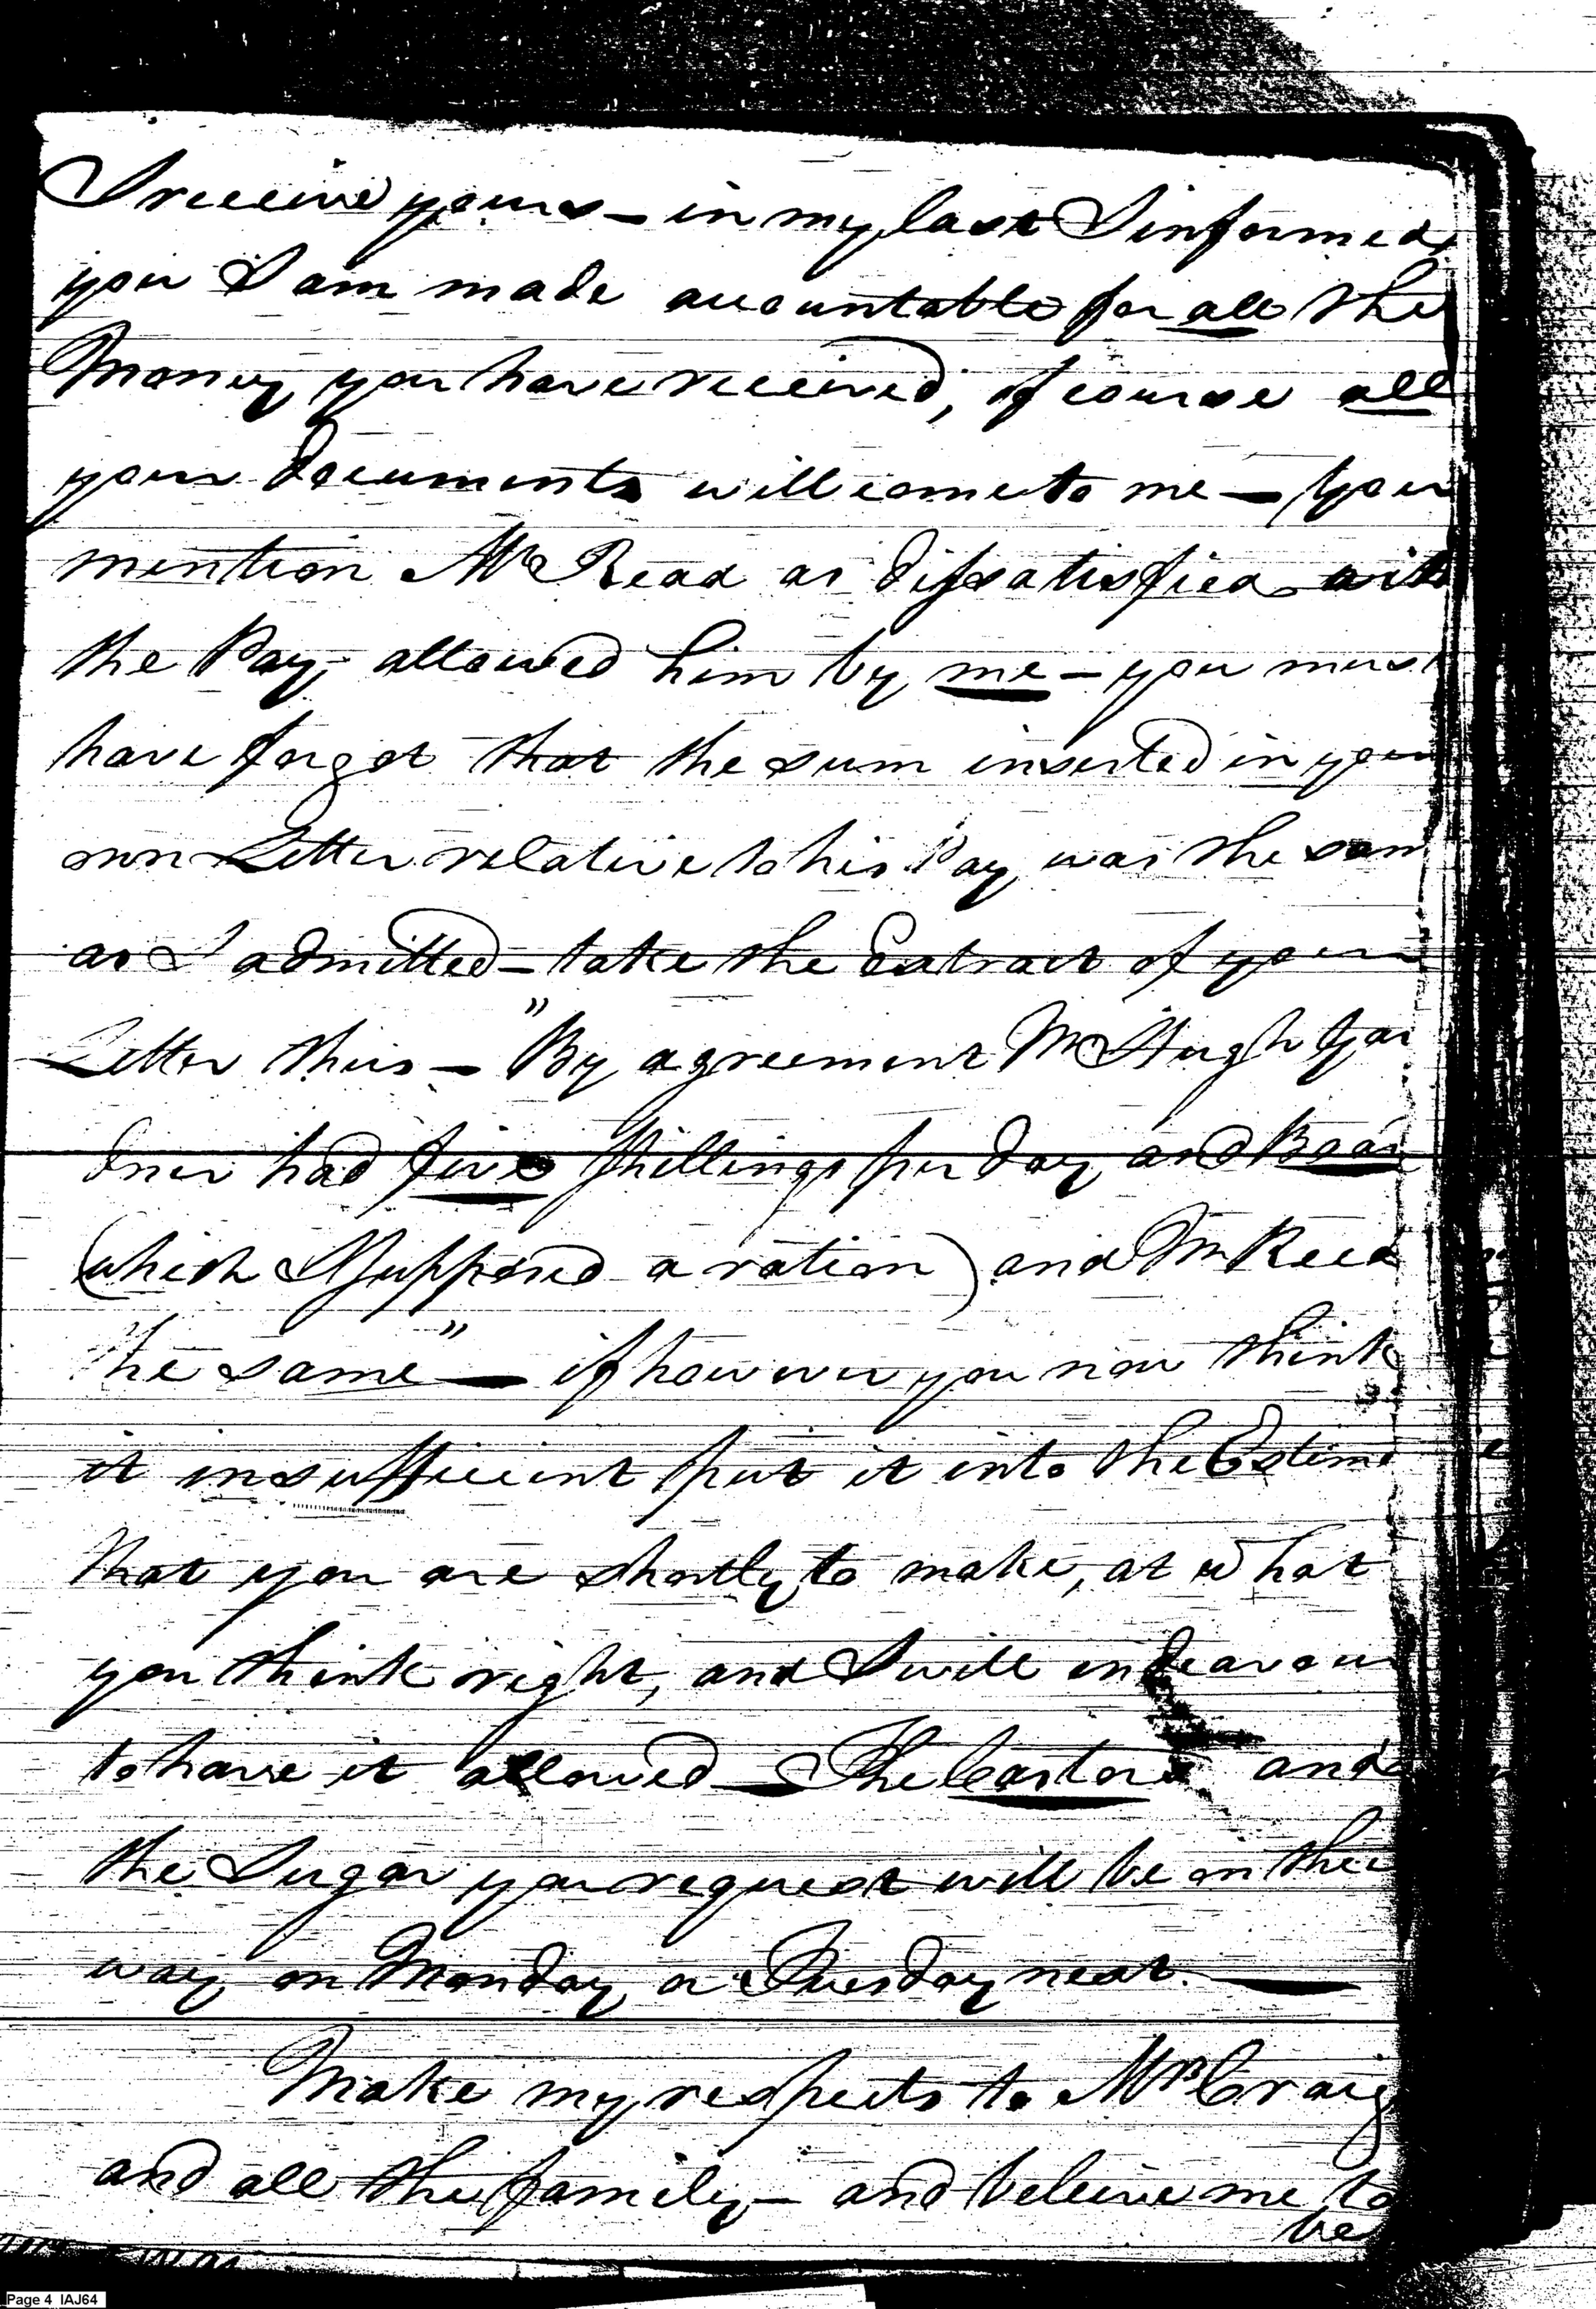 I receive yours — in my last I informed
you I am made accountable for all the
Money you have received, of course all
your documents will come to me — You
mention Mr Read as dissatisfied with
the Pay, allowed him by me — you must
have forgot that the sum inserted in your
own Letter relative to his Pay was the sam
as I admitted — take the Extract of your
Letter thus — "By agreement Mr Hugh
had five Shillings per day and Boar
(which I supposed a ration) and Mr Reed
the same" — if however you now think
it insufficient put it into the Estim
that you are shortly to make, at what
you think right, and I will endeavour
to have it allowed — The Castor and
the Sugar you request will be on their
way on Monday or Tuesday next. —
Make my respects to Mrs Craig
and all the family — and beleive me to
be
Page 4 IAJ64